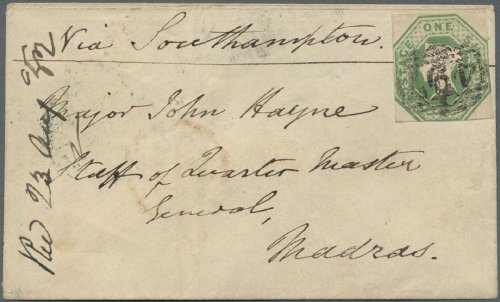 Via Southampton.
Major John Hayne
Staff of Quarter Master
General,
Madras.
23 Aug
POSTAGE ONE